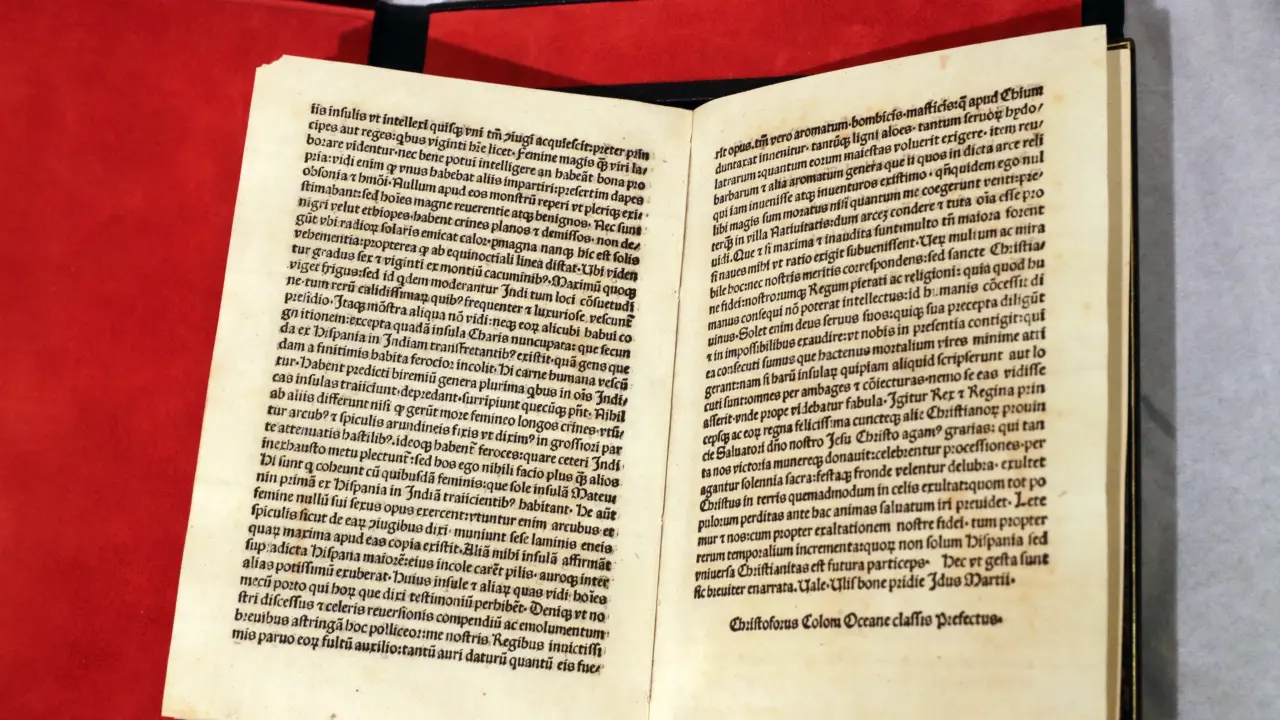 iis insulis vt intellexi quisq̃ vni tm̃ ↄiugi acquiescit: preter prin
cipes aut reges: qbus viginti hr̃e licet. Femine magis q̃ȝ viri la-
borare videntur. nec bene potui intelligere an habeãt bona pro
pria: vidi enim ꝙ vnus habebat aliis impartiri: presertim dapes
obsonia ⁊ hmõi. Nullum apud eos monstrũ reperi vt pleriq̃ exi-
stimabant: sed hoĩes magne reuerentie atq̃ benignos. Nec sunt
nigri velut ethiopes. habent crines planos ⁊ demissos. non de-
gũt vbi radioꝝ solaris emicat calor. pmagna nanq̃ hic est solis
vehementia: propterea ꝙ ab equinoctiali linea distat. Ubi viden
tur gradus sex ⁊ viginti ex montiũ cacuminibꝰ. Maximũ quoq̃
viget frigus: sed id qdem moderantur Indi tum loci cõsuetudi
ne. tum rerũ calidissimaꝝ quibꝰ frequenter ⁊ luxuriose vescunt̃
presidio. Itaq̃ mõstra aliqua nõ vidi: neq̃ eoꝝ alicubi habui co
gnitionem: excepta quadã insula Charis nuncupata: que secun
da ex Hispania in Indiam transfretantibꝰ existit. quã gens que
dam a finitimis habita ferocior incolit. Hi carne humana vescũ
tur. Habent predicti biremiũ genera plurima qbus in oĩs Indi-
cas insulas traiiciunt. depredant. surripiunt quecũq̃ pñt. Nihil
ab aliis differunt nisi ꝙ gerũt more femineo longos crines. vtũ-
tur arcubꝰ ⁊ spiculis arundineis fixis vt diximꝰ in grossiori par
te attenuatis hastilibꝰ. ideoq̃ habent̃ feroces: quare ceteri Indi
inexhausto metu plectunt̃: sed hos ego nihili facio plus q̃ȝ alios
Hi sunt q coheunt cũ quibusdã feminis: que sole insulã Mateu
nin primã ex Hispania in Indiã traiicientibꝰ habitant. He aũt
femine nullũ sui sexus opus exercent: vtuntur enim arcubus et
spiculis sicut de eaꝝ ↄiugibus dixi. muniunt sese laminis eneis
quaꝝ maxima apud eas copia existit. Aliã mihi insulã affirmãt
supradicta Hispana maiorẽ: eius incole carẽt pilis. auroq̃ inter
alias potissimũ exuberat. Huius insule ⁊ aliaꝝ quas vidi hoĩes
mecũ porto qui hoꝝ que dixi testimoniũ perhibẽt. Deniq̃ vt no
stri discessus ⁊ celeris reuersionis compendiũ ac emolumentum
breuibus astringã hoc polliceor: me nostris Regibus inuictissi
mis paruo eoꝝ fultũ auxilio: tantũ auri daturũ quantũ eis fue-
rit opus. tm̃ vero aromatum. bombicis. masticis: q̃ apud Chium
duntaxat inuenitur. tantũq̃ ligni aloes. tantum seruoꝝ hydo-
latrarum: quantum eorum maiestas voluerit exigere. item reu-
barbarum ⁊ alia aromatum genera que ii quos in dicta arce reli
qui iam inuenisse atq̃ inuenturos existimo. qñquidem ego nul
libi magis sum moratus nisi quantum me coegerunt venti: pre-
terq̃ȝ in villa Natiuitatis: dum arcez condere ⁊ tuta oĩa esse pro
uidi. Que ⁊ si maxima ⁊ inaudita sunt: multo tñ maiora forent
si naues mihi vt ratio exigit subuenissent. Ueꝝ multum ac mira
bile hoc: nec nostris meritis correspondens: sed sancte Christia-
ne fidei: nostrorumq̃ Regum pietati ac religioni: quia quod hu
manus consequi nõ poterat intellectus: id humanis cõcessit di
uinus. Solet enim deus seruos suos: quiq̃ sua precepta diligũt
⁊ in impossibilibus exaudire: vt nobis in presentia contigit: qui
ea consecuti sumus que hactenus mortalium vires minime atti
gerant: nam si haru insulaꝝ quipiam aliquid scripserunt aut lo
cuti sunt: omnes per ambages ⁊ cõiecturas. nemo se eas vidisse
asserit. vnde prope videbatur fabula. Igitur Rex ⁊ Regina prin
cepsq̃ ac eoꝝ regna felicissima cuncteq̃ alie Christianoꝝ prouin
cie Saluatori dño nostro Jesu Christo agamꝰ gratias: qui tan
ta nos victoria munereq̃ donauit: celebrentur processiones. per
agantur solennia sacra: festaq̃ fronde velentur delubra. exultet
Christus in terris quemadmodum in celis exultat: quom tot po
pulorum perditas ante hac animas saluatum iri preuidet. Lete
mur ⁊ nos: cum propter exaltationem nostre fidei. tum propter
rerum temporalium incrementa: quoꝝ non solum Hispania sed
vniuersa Christianitas est futura particeps. Hec vt gesta sunt
sic breuiter enarrata. Uale. Ulisbone pridie Idus Martii.
Christoforus Colom Oceane classis Prefectus.